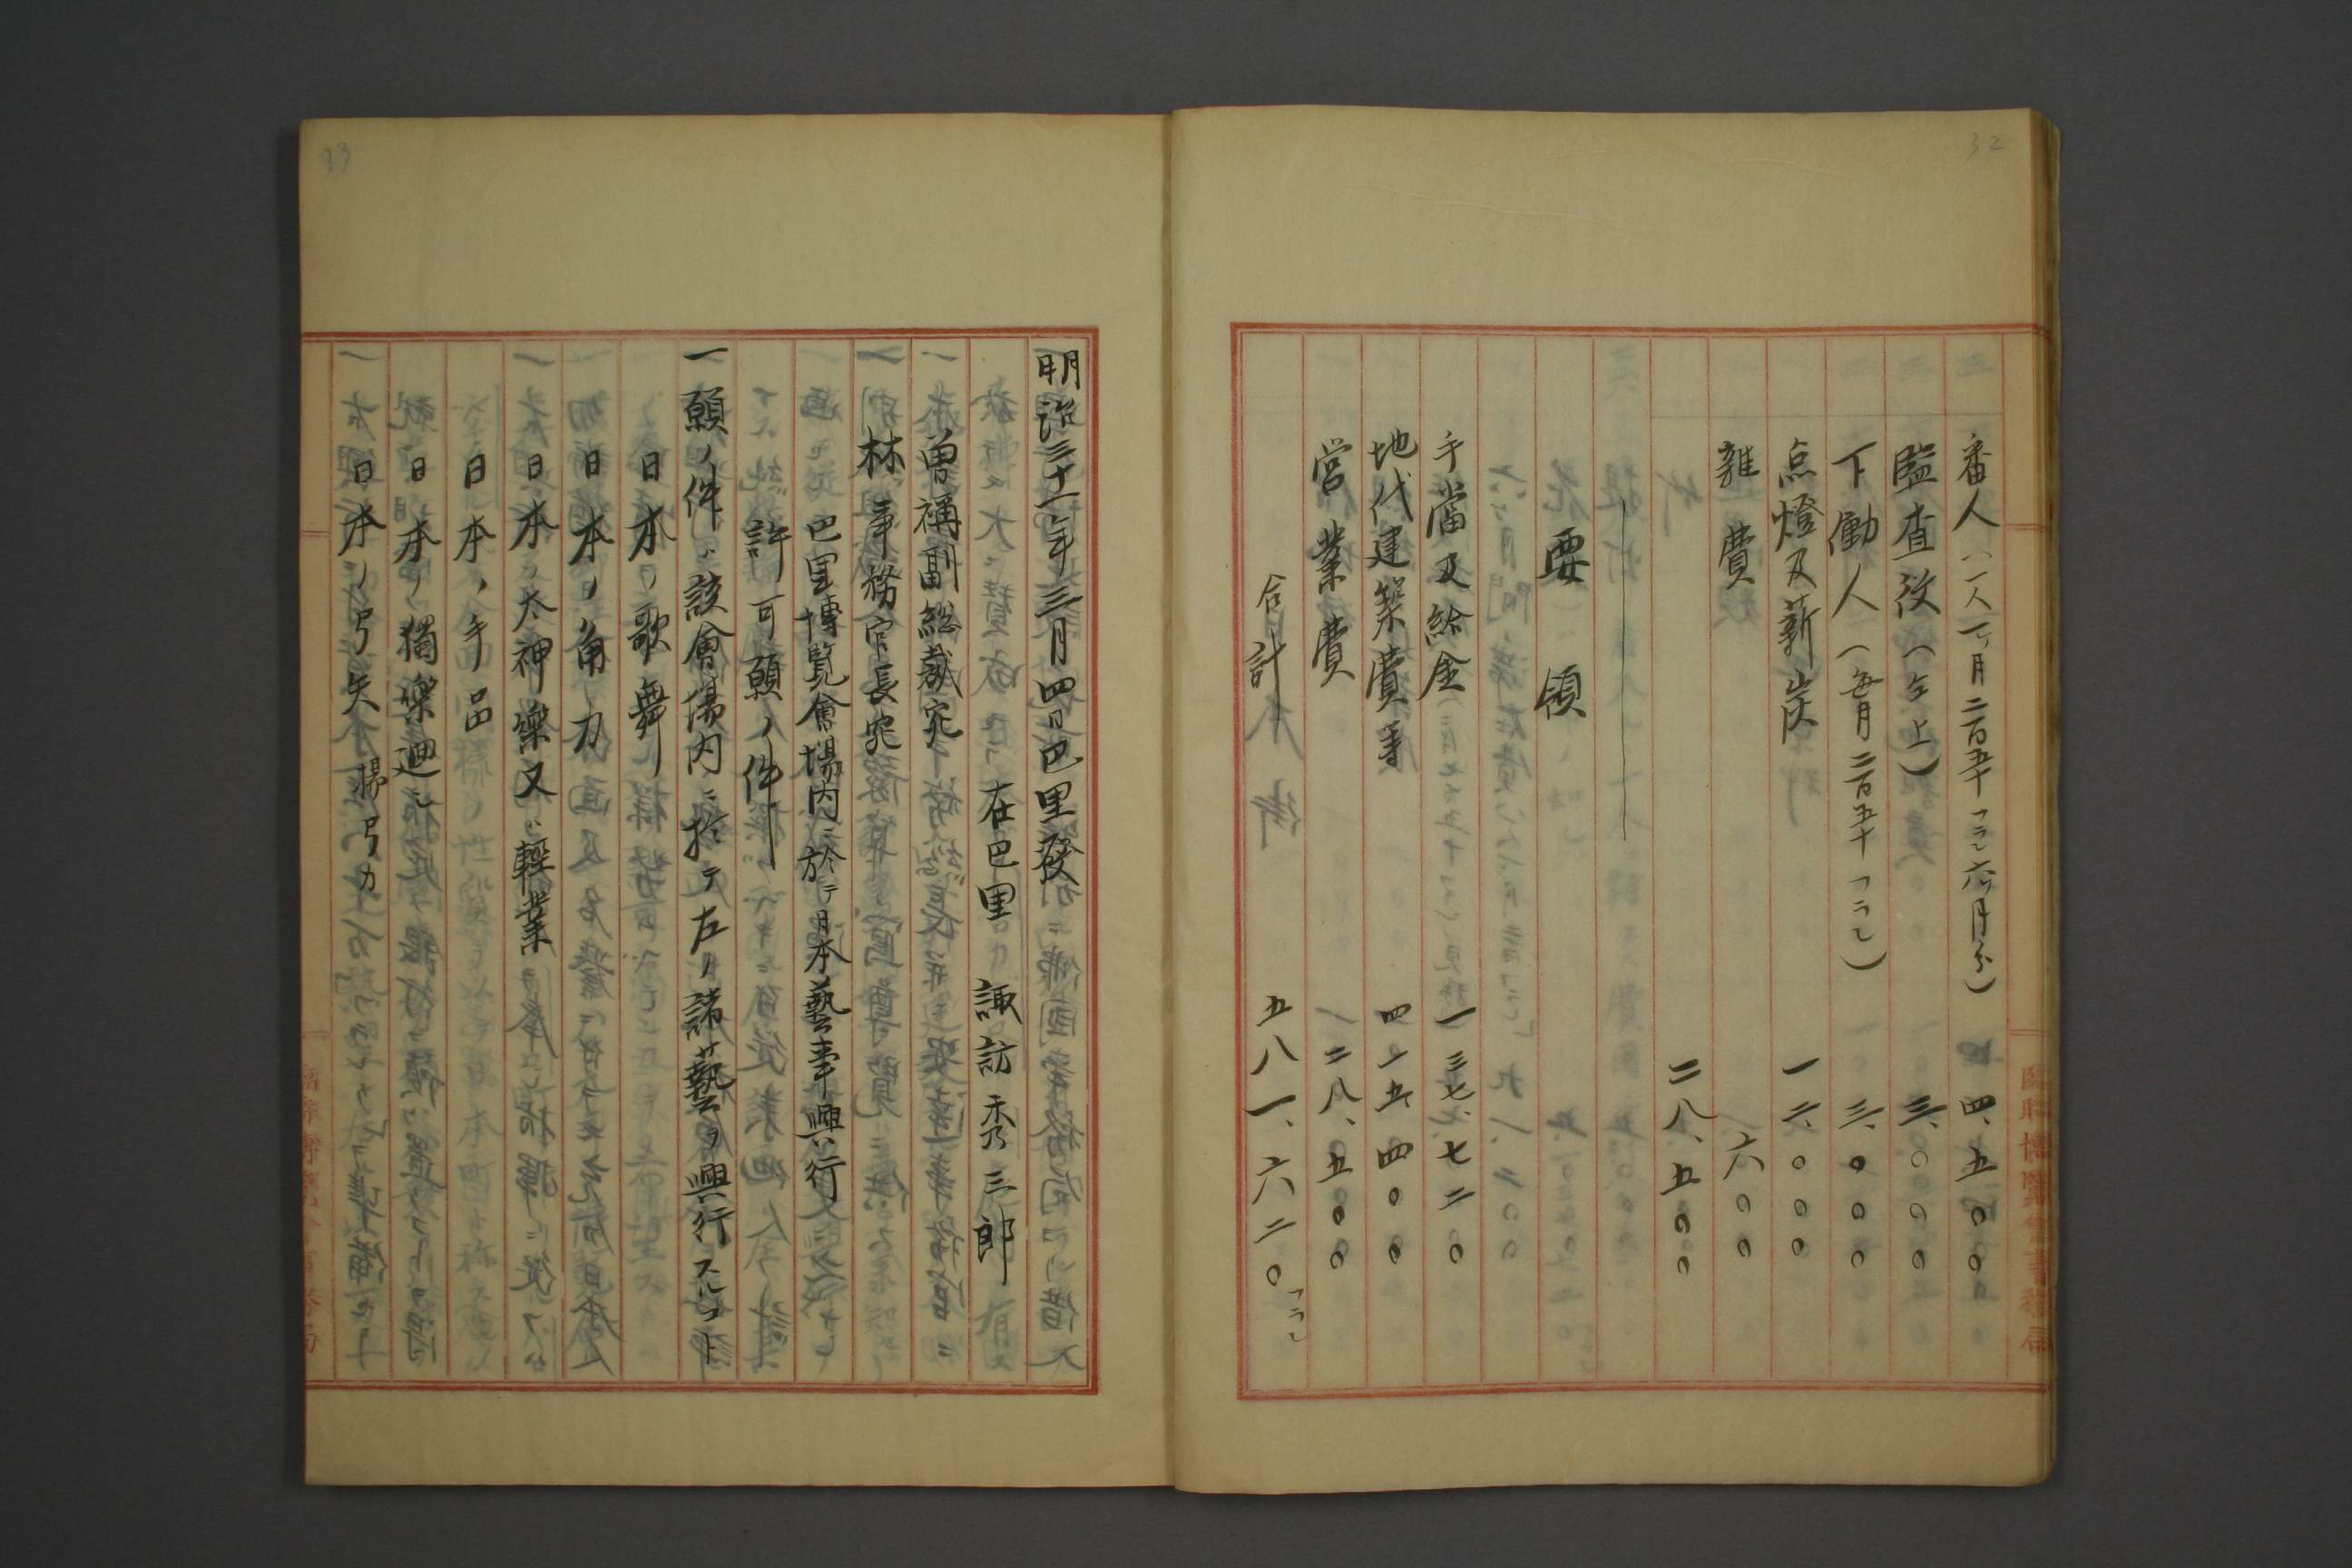 32
番人(一人一ヶ月二百五十フラン六ヶ月分) 四、五〇〇
監査役(仝上) 三、〇〇〇
下働人(毎月二百五十フラン) 三、〇〇〇
点燈及薪炭 一二、〇〇〇
雑費 六〇〇
二八、五〇〇
要領
手當及給金 一三七、七二〇
地代建築費等 四一五、四〇〇
営業費 二八、五〇〇
合計 五八一、六二〇フラン
臨時博覧會事務局
33
明治三十一年三月四日巴里發
在巴里 諏訪秀三郎
曽禰副総裁宛
林事務官長宛
巴里博覧會場内ニ於テ日本藝事興行
許可願ノ件
一願ノ件ハ該會場内ニ於テ左ノ諸藝ヲ興行スルヿ
日本ノ歌舞
日本ノ角力
日本ノ太神樂又ハ輕業
日本ノ手品
日本ノ獨樂廻シ
日本ノ弓矢 楊弓カ
臨時博覧會事務局